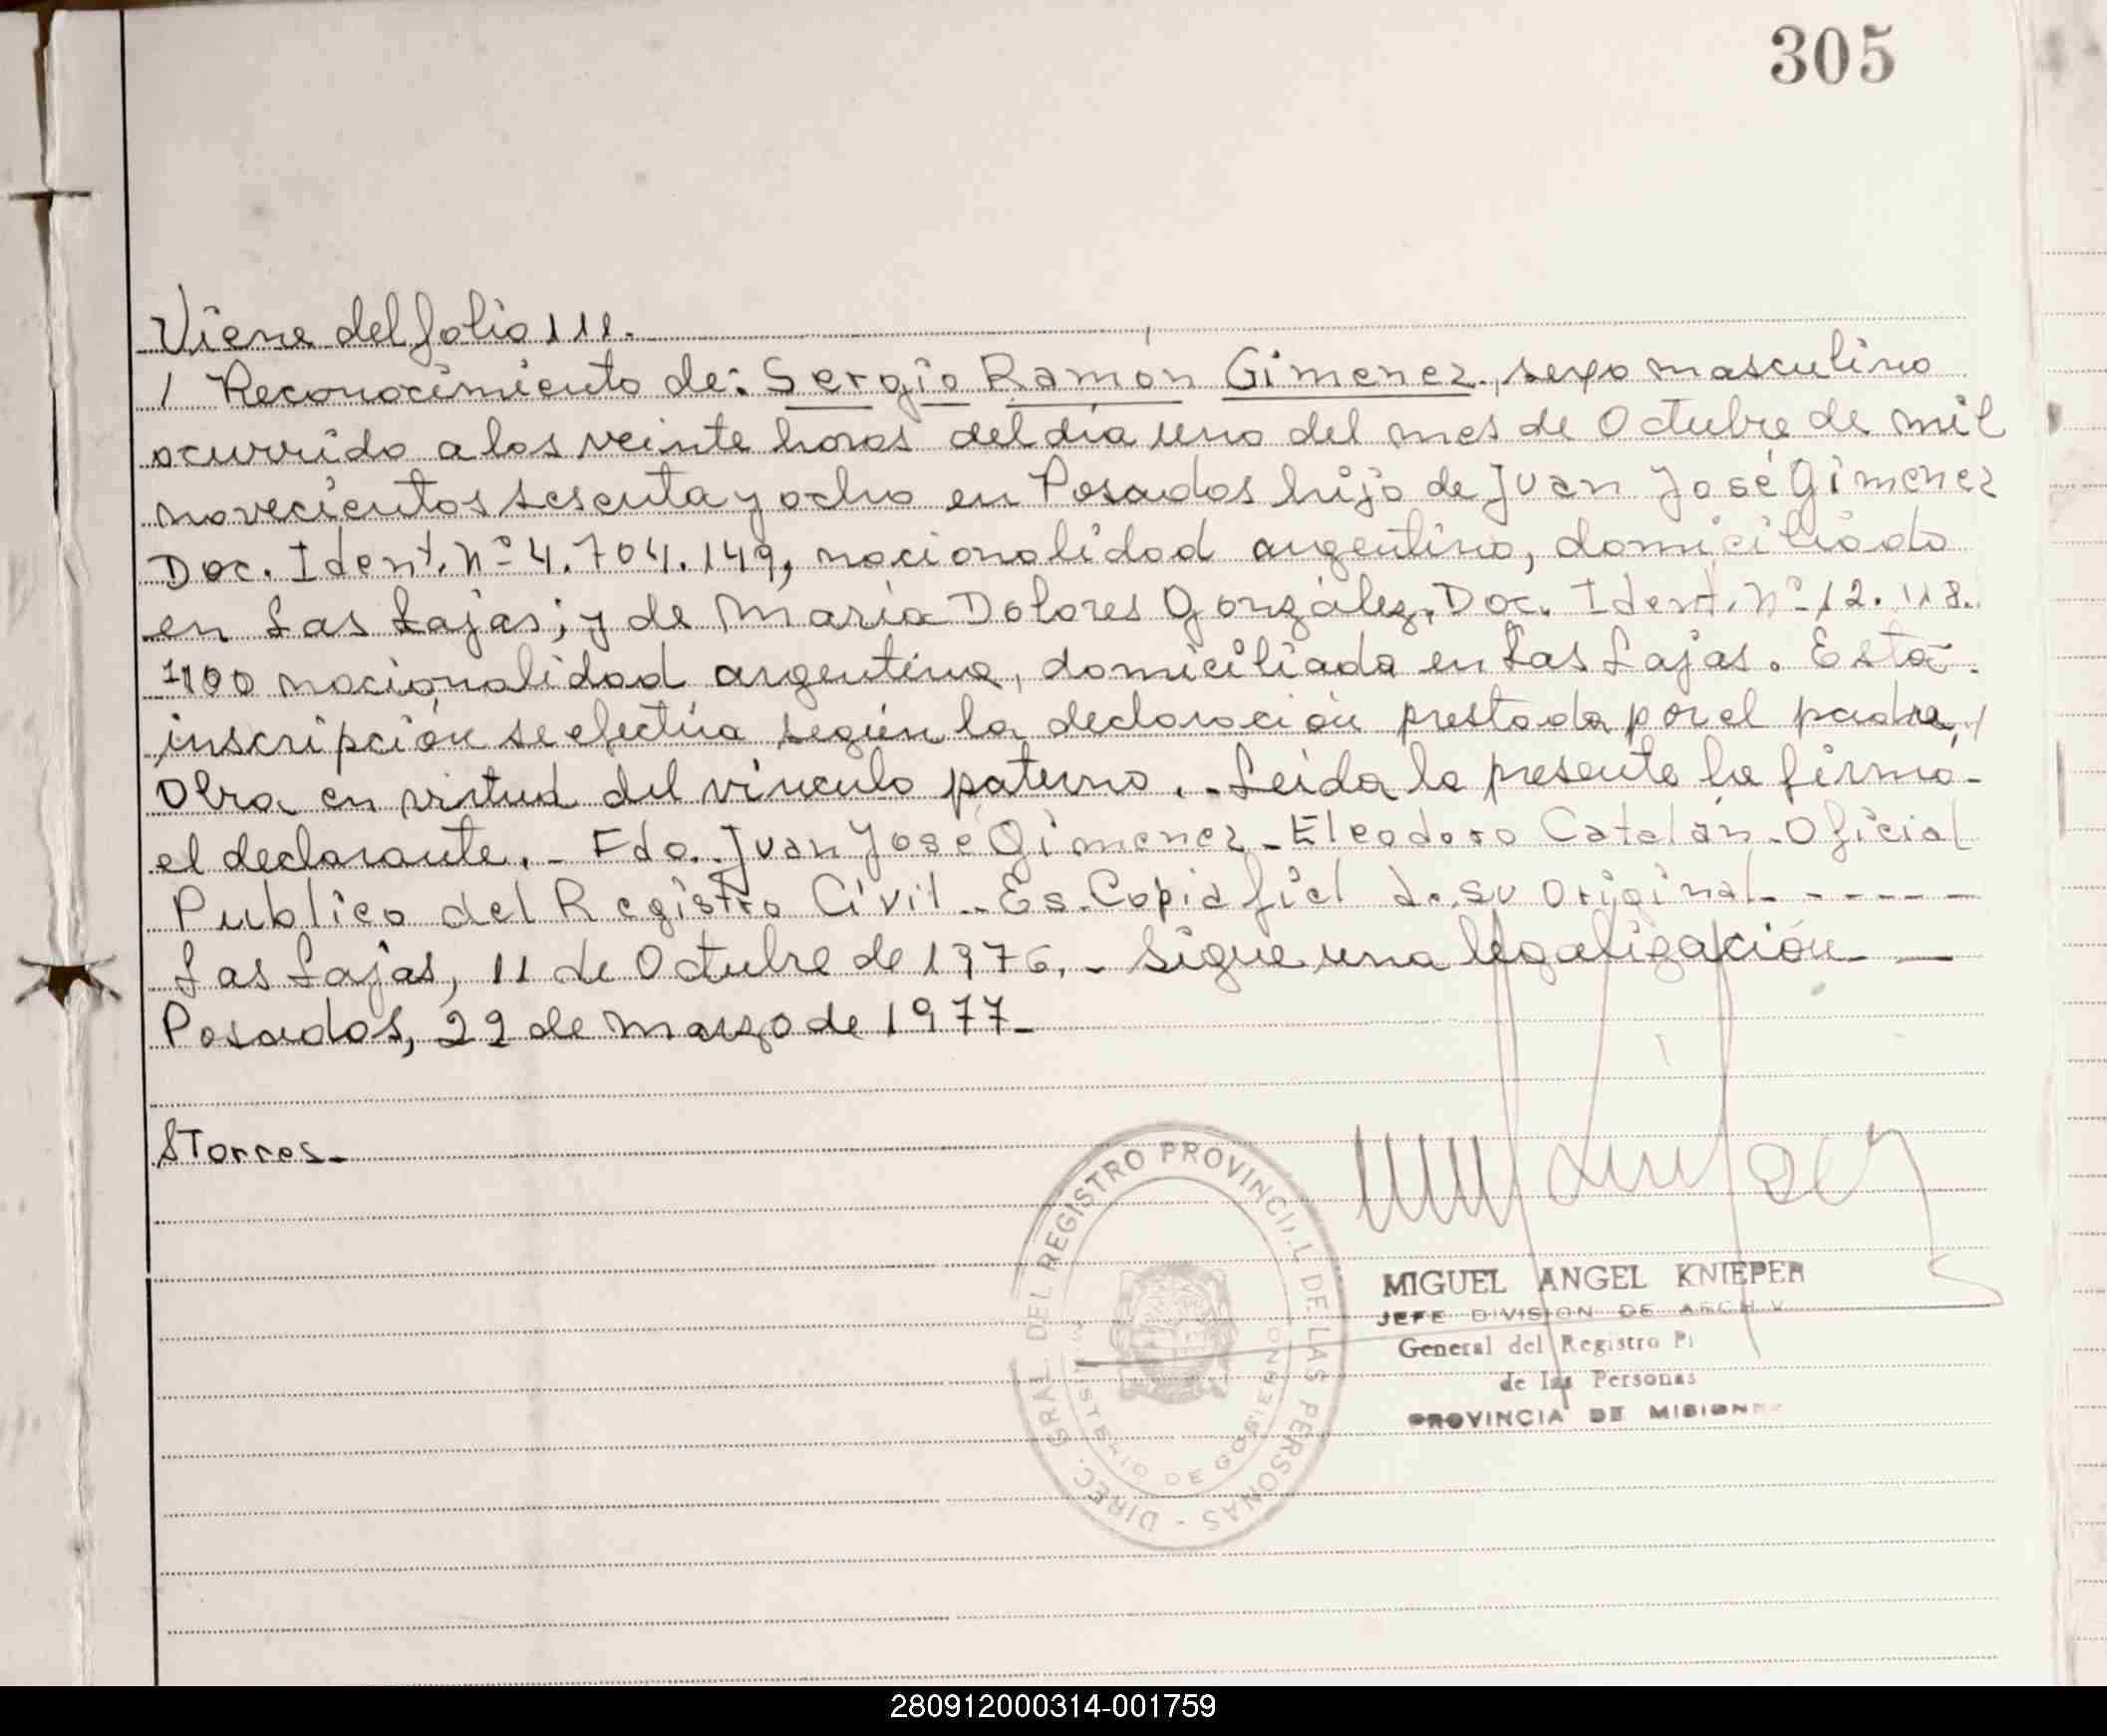 305
Viene del folio 111.
/ Reconocimiento de: Sergio Ramón Gimenez, sexo masculino
ocurrido a los veinte horas del día uno del mes de Octubre de mil
novecientos sesenta y ocho en Posadas hijo de Juan José Gimenez
Doc. Ident. Nº 4.704.149, nacionalidad argentino, domiciliado
en Las Lajas; y de María Dolores González, Doc. Ident. Nº 12.118.
nacionalidad argentina, domiciliada en Las Lajas. Esta
inscripción se efectúa según la declaración prestada por el padre,
Obra en virtud del vínculo paterno. - Leída la presente la firma-
el declarante. - Fdo. Juan José Gimenez - Eleodoro Catalán - Oficial
Publico del Registro Civil - Es Copia fiel de su original - - - - -
Las Lajas, 11 de Octubre de 1976. - Sigue una legalización -
Posadas, 22 de marzo de 1977 -
STorres -
DIREC. GRAL. DEL REGISTRO PROVINCIAL DE LAS PERSONAS -
MINISTERIO DE GOBIERNO
MIGUEL ANGEL KNIEPER
JEFE DIVISION DE ARCHIV
General del Registro P
de las Personas
PROVINCIA DE MISIONES
280912000314-001759